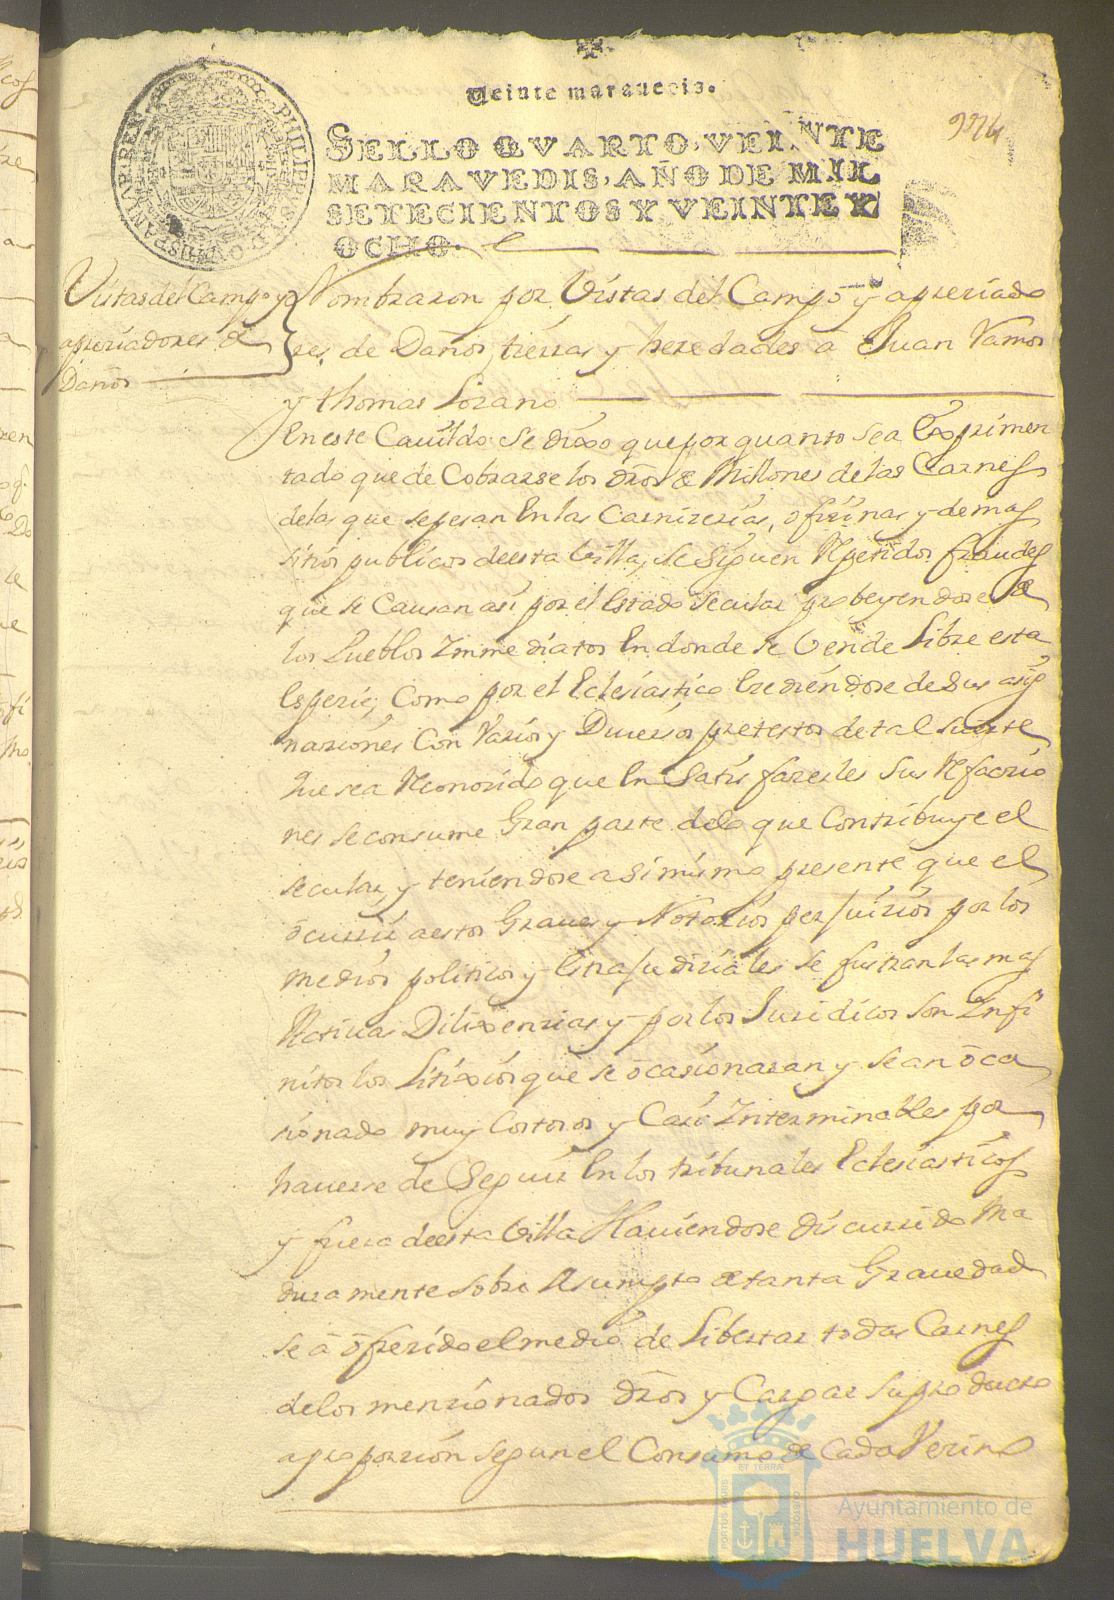 Veinte maravedis.
SELLO QVARTO, VEINTE
MARAVEDIS, AÑO DE MIL
SETECIENTOS Y VEINTE Y
OCHO.
PHILIPPUS V D G HISPANIAR REX
Vistas del Campo y
apreciadores de
Daños
Nombraron por Vistas del Campo y apreciado
res de Daños tierras y heredades a Juan Ramos
y Thomas Lozano
En este Cauildo se dixo que por quanto sea Experimen
tado que de Cobrarse los dros de Millones de las Carnes
delas que se pesan En las Carnizerias, ofizinas y demas
sitios publicos de esta Villa, se siguen Repetidos fraudes
que se Causan asi por el Estado secular probeyendose de
los Pueblos Inmediatos En donde se Vende Libre esta
Especie, Como por el Eclesiastico Exediendose de sus asig
naziones Con Varios y Diuersos pretestos de tal suerte
que sea Reconozido que En Satisfazerles sus Refaczio
nes se consume Gran parte delo que Contribuye el
secular, y teniendose asimismo presente que el
ocurrir a estos Graues y Notorios perjuizios por los
medios politicos y Extrajudiziales se frustran las mas
Actiuas Dilixenzias y por los Juridicos son Infi
nitos los Litixios que se ocasionaran y se an oca
sionado muy Costosos y Casi Interminables por
hauerse de Seguir En los tribunales Eclesiasticos
y fuera de esta Villa Hauiendose discurrido Ma
duramente sobre Asumpto de tanta Grauedad
se a ofrezido el medio de Libertar todas Carnes
delos menzionados dros y Cargar su producto
a proporzion segun el Consumo de Cada Vezino
Ayuntamiento de
HUELVA